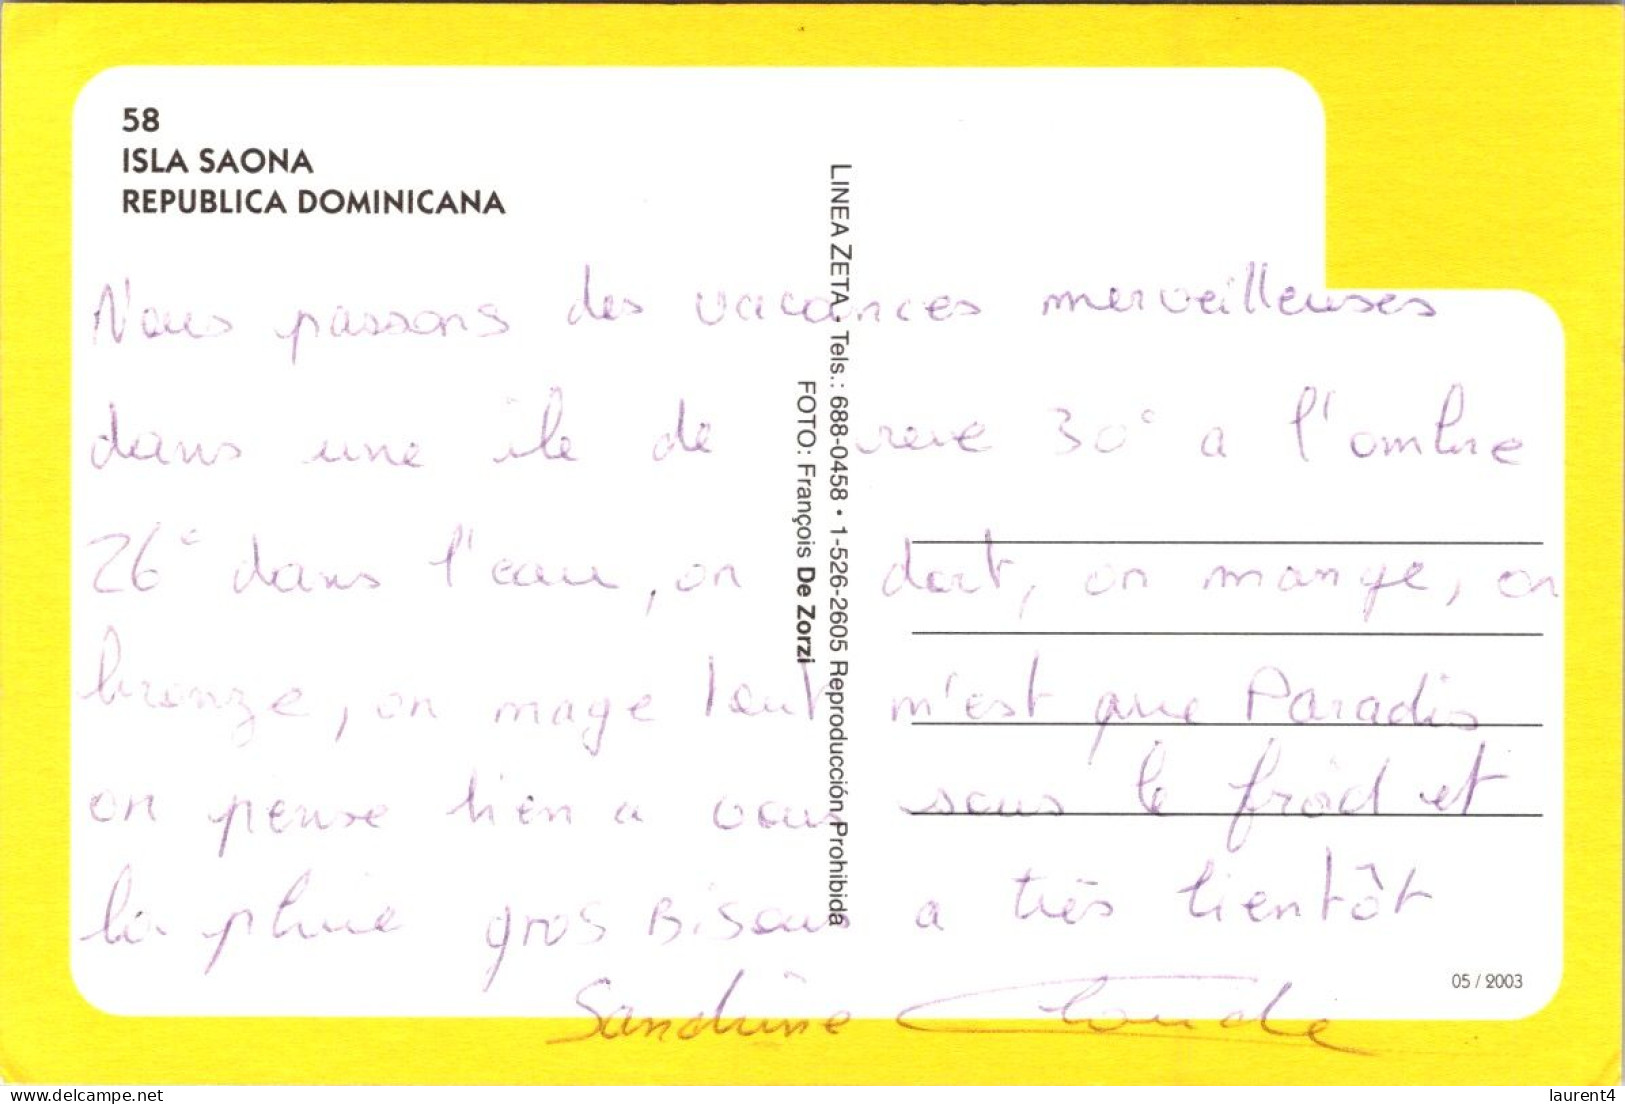 58
ISLA SAONA
REPUBLICA DOMINICANA
LINEA ZETA • Tels.: 688-0458 • 1-526-2605 Reproducción Prohibida
FOTO: François De Zorzi
Nous passons des vacances merveilleuses
dans une île de reve 30° a l'ombre
26° dans l'eau, on dort, on mange, on
bronze, on mage tout n'est que Paradis
on pense bien a vous sous le froid et
la pluie gros Bisous a très bientôt
Sandrine Claude
05 / 2003
laurent4